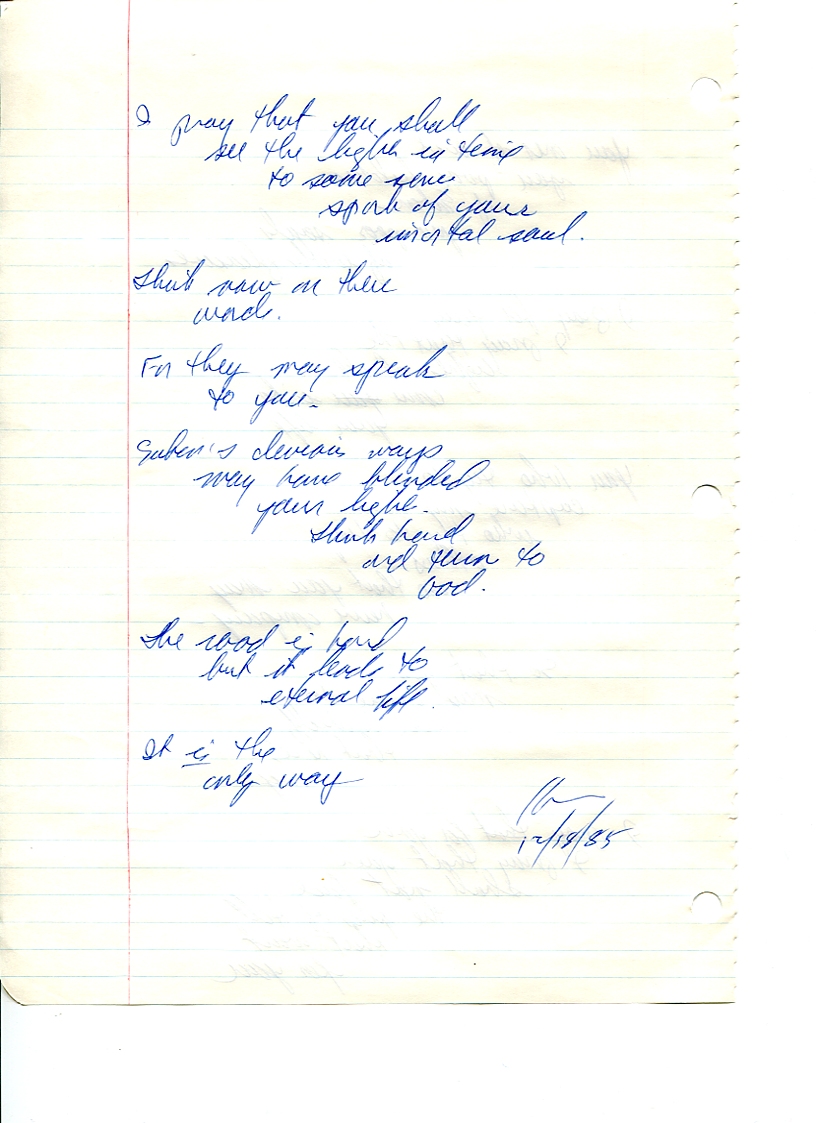 I pray that you shall
see the light in time
to some
spark of your
immortal soul.
Think now on these
words.
For they may speak
to you.
Satan's devious ways
may have blinded
your light.
Think hard
and turn to
God.
The road is hard
but it leads to
eternal life.
It is the
only way
12/18/85